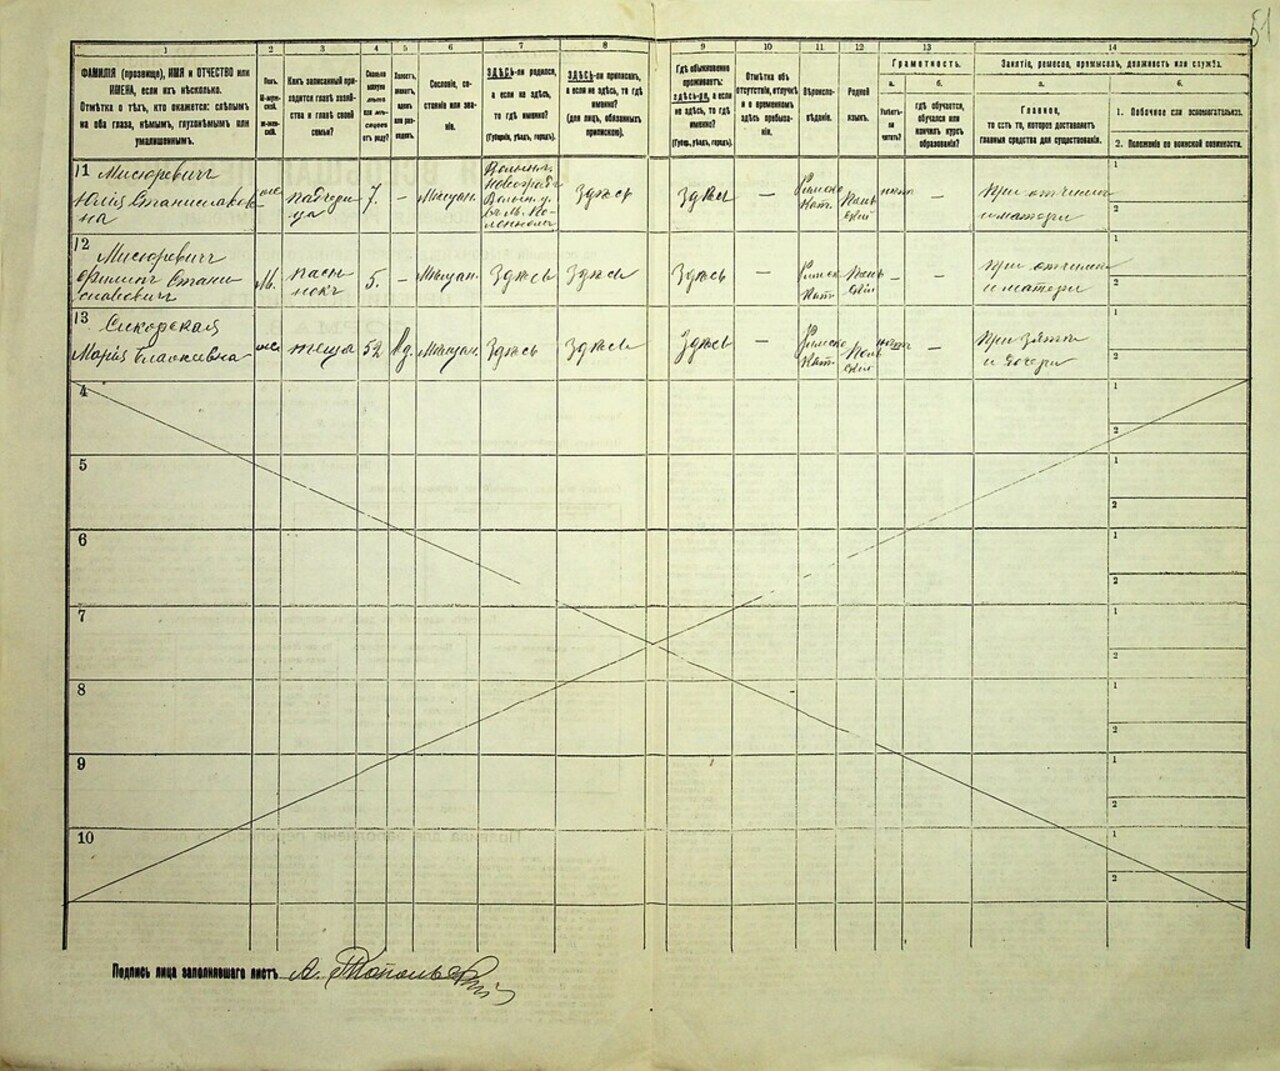 51
1
2
3
4
5
6
7
8
9
10
11
12
13
14
ФАМИЛІЯ (прозвище), ИМЯ и ОТЧЕСТВО или
ИМЕНА, если ихъ нѣсколько.
Отмѣтка о тѣхъ, кто окажется: слѣпымъ
на оба глаза, нѣмымъ, глухонѣмымъ или
умалишеннымъ.
Полъ.
Какъ записанный при-
ходится главѣ хозяй-
ства и главѣ своей
семьи?
Сколько
Сословіе, со-
стояніе или зва-
ніе.
ЗДѢСЬ-ли родился,
а если не здѣсь,
то гдѣ именно?
(Губернія, уѣздъ, городъ).
ЗДѢСЬ-ли приписанъ,
а если не здѣсь, то гдѣ
именно?
(для лицъ, обязанныхъ
припискою).
Гдѣ обыкновенно
проживаетъ:
здѣсь-ли, а если
не здѣсь, то гдѣ
именно?
(Губер., уѣздъ, городъ).
Отмѣтка объ
отсутствіи, отлучкѣ
и о временномъ
здѣсь пребыва-
ніи.
Вѣроиспо-
вѣданіе.
Родной
языкъ.
Грамотность.
а.
Умѣетъ-
ли
читать?
б.
гдѣ обучается,
обучался или
кончилъ курсъ
образованія?
Занятіе, ремесло, промыселъ, должность или служба.
а.
Главное,
то есть то, которое доставляетъ
главныя средства для существованія.
б.
1. Побочное или вспомогательное.
2. Положеніе по воинской повинности.
11 Мисюревичъ
Юлія Станиславов-
на
падчери-
ца
7.
–
Мѣщан.
Волынск.
Новоград
Волын. у.
Здѣсь
Здѣсь
—
Римско
Кат.
Поль
скій
–
При отчимѣ
и матери
1
2
12
Мисюревичъ
Филипъ Стани
славовичъ
М.
пасы-
нокъ
5.
–
Мѣщан.
Здѣсь
Здѣсь
Здѣсь
—
Римско
Кат.
Поль
скій
–
–
При отчимѣ
и матери
1
2
13
Сикорская
Марія
теща
52
Вд.
Мѣщан.
Здѣсь
Здѣсь
Здѣсь
—
Римско
Кат.
Поль
скій
–
При зятѣ
и дочери
1
2
4
1
2
5
1
2
6
1
2
7
1
2
8
1
2
9
1
2
10
1
2
Подпись лица заполнявшаго листъ А. Топольскій